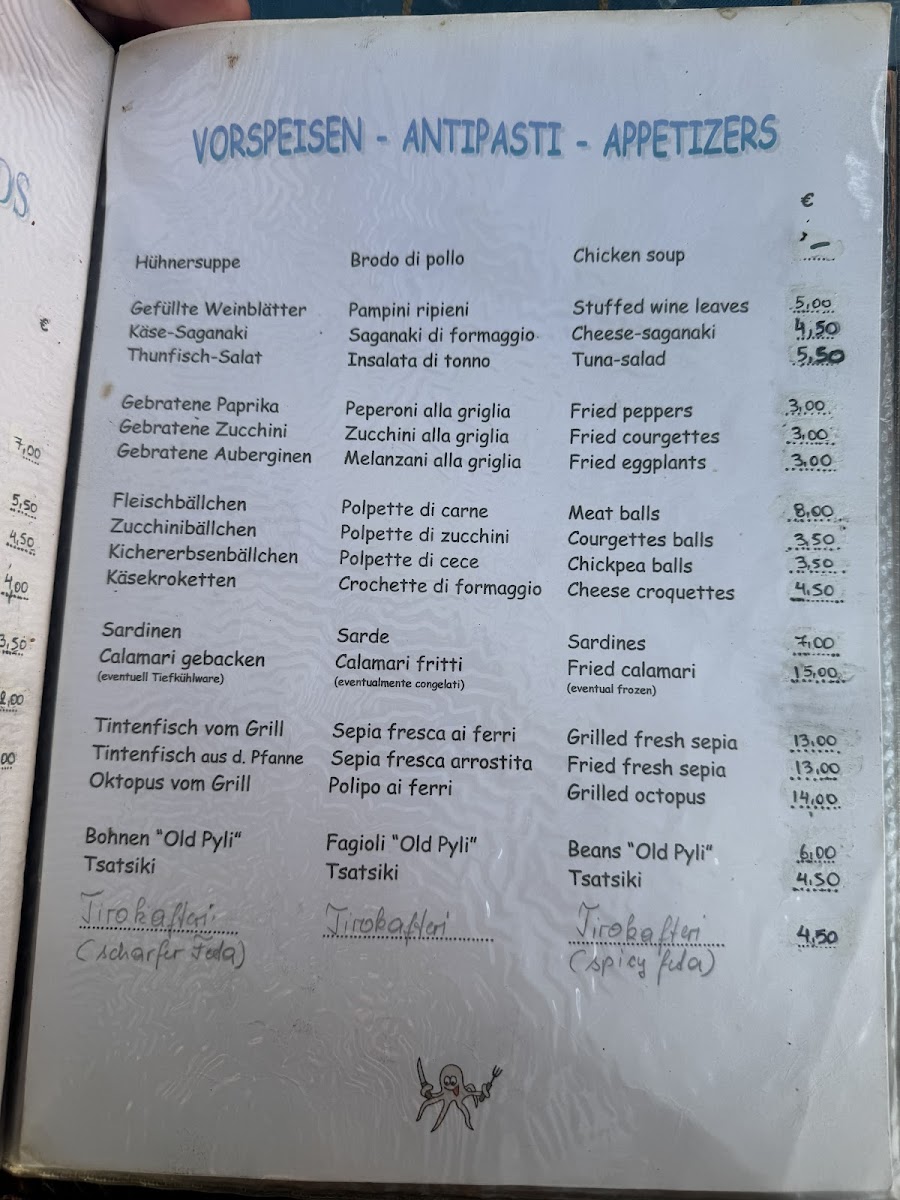 OS.
€
7,00
5,50
4,50
4,00
3,50
00
VORSPEISEN - ANTIPASTI - APPETIZERS
€
Hühnersuppe Brodo di pollo Chicken soup ,–
Gefüllte Weinblätter Pampini ripieni Stuffed wine leaves 5,00
Käse-Saganaki Saganaki di formaggio Cheese-saganaki 4,50
Thunfisch-Salat Insalata di tonno Tuna-salad 5,50
Gebratene Paprika Peperoni alla griglia Fried peppers 3,00
Gebratene Zucchini Zucchini alla griglia Fried courgettes 3,00
Gebratene Auberginen Melanzani alla griglia Fried eggplants 3,00
Fleischbällchen Polpette di carne Meat balls 8,00
Zucchinibällchen Polpette di zucchini Courgettes balls 3,50
Kichererbsenbällchen Polpette di cece Chickpea balls 3,50
Käsekroketten Crochette di formaggio Cheese croquettes 4,50
Sardinen Sarde Sardines 7,00
Calamari gebacken Calamari fritti Fried calamari 15,00
(eventuell Tiefkühlware) (eventualmente congelati) (eventual frozen)
Tintenfisch vom Grill Sepia fresca ai ferri Grilled fresh sepia 13,00
Tintenfisch aus d. Pfanne Sepia fresca arrostita Fried fresh sepia 13,00
Oktopus vom Grill Polipo ai ferri Grilled octopus 14,00
Bohnen "Old Pyli" Fagioli "Old Pyli" Beans "Old Pyli" 6,00
Tsatsiki Tsatsiki Tsatsiki 4,50
Tirokafteri Tirokafteri Tirokafteri 4,50
(scharfer Feta) (spicy feta)